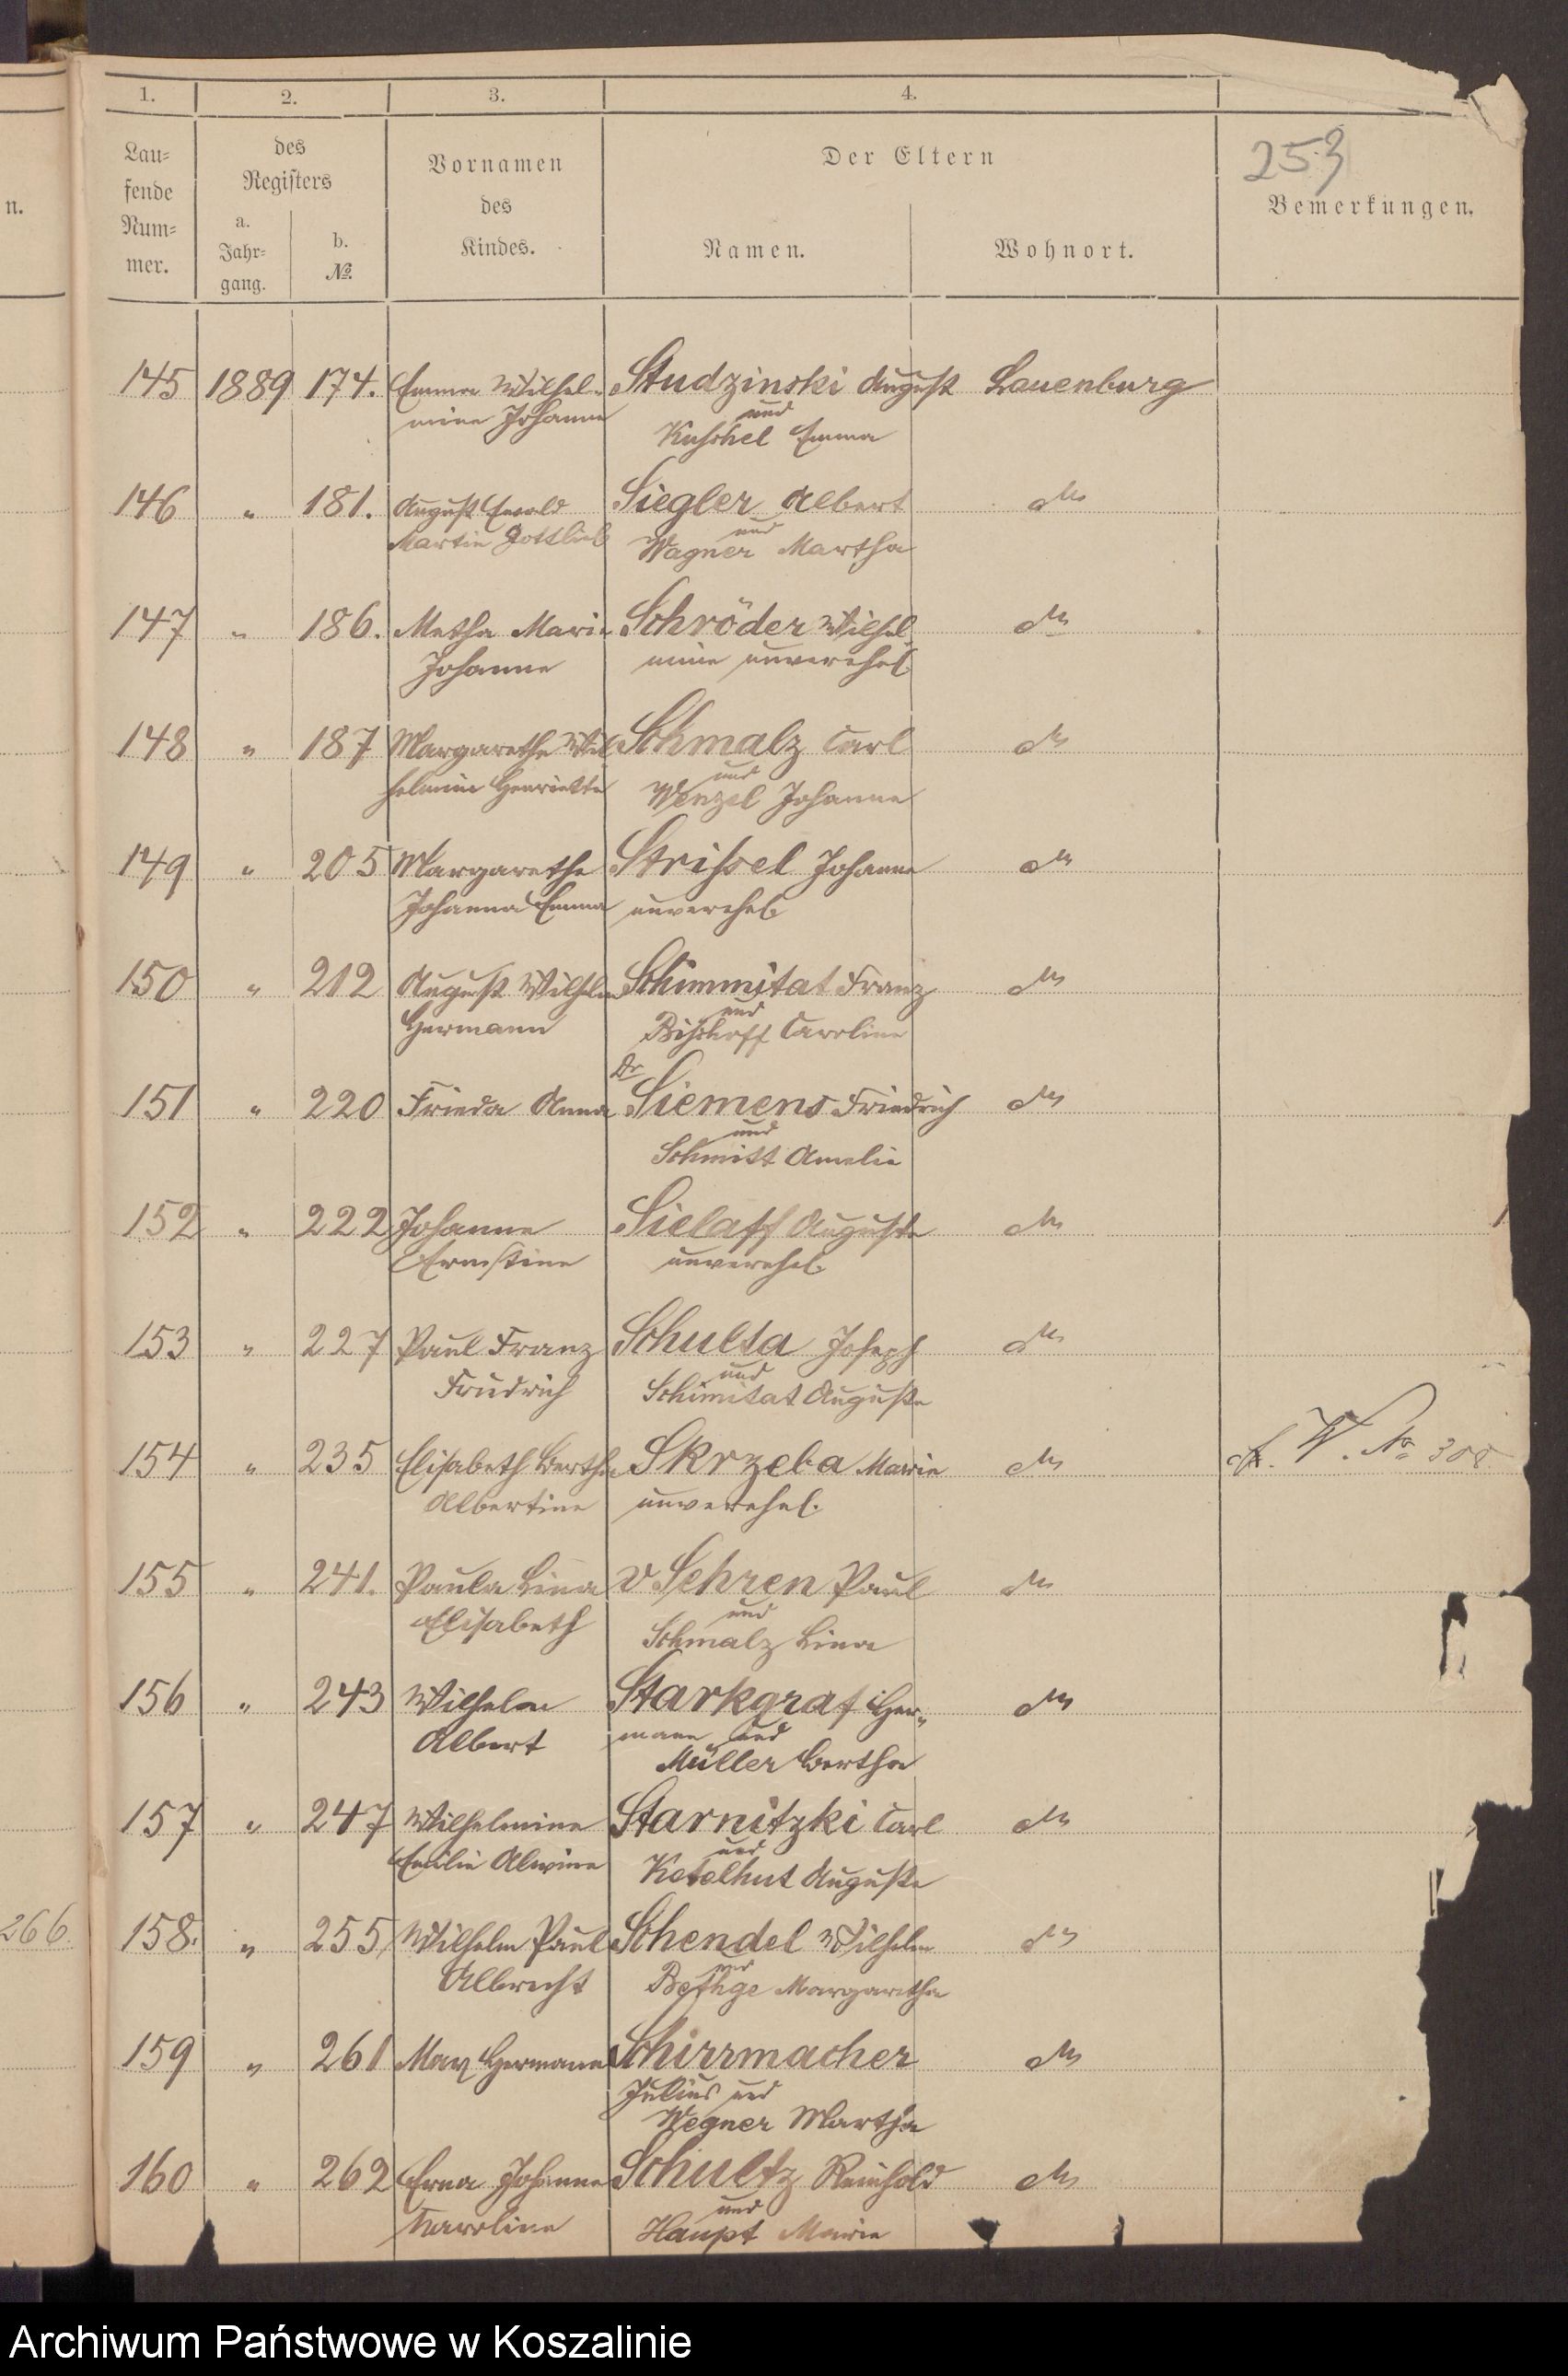 1. 2. 3. 4.
Lau=
fende
Num=
mer.
des
Registers
a.
Jahr=
gang.
b.
№.
Vornamen
des
Kindes.
Der Eltern
Namen.
Wohnort.
253
Bemerkungen.
n.
145 1889 174. Emma Wilhel- Studzinski August Lauenburg
mine Johanna und
Kuschel Emma
146 " 181. August Ewald Siegler Albert do
Martin Gottlieb und
Wagner Martha
147 " 186. Metha Marie Schröder Wilhel do
Johanne mine unverehel.
148 " 187 Margarethe Wil Schmalz Carl do
helmine Henriette und
Wenzel Johanne
149 " 205 Margarethe Strissel Johanna do
Johanna Emma unverehel.
150 " 212 August Wilhelm Schimmitat Franz do
Hermann und
Bischoff Caroline
151 " 220 Frieda Anna Dr Siemens Friedrich do
und
Schmitt Amalie
152 " 222 Johanne Sielaff Auguste do
Ernstine unverehel.
153 " 227 Paul Franz Schulta Joseph do
Friedrich und
Schimitat Auguste
154 " 235 Elisabeth Bertha Skrzeba Marie do W. No 308
Albertine unverehel.
155 " 241. Paula Lina v Sehren Paul do
Elisabeth und
Schmalz Lina
156 " 243 Wilhelm Starkgraf Her- do
Albert mann und
Müller Bertha
157 " 247 Wilhelmine Starnitzki Carl do
Emilie Alwine und
Ketelhut Auguste
266.
158. " 255 Wilhelm Paul Schendel Wilhelm do
Albrecht und
Bethge Margaretha
159 " 261 Max Hermann Schirrmacher do
Julius und
Wegner Martha
160 " 262 Erna Johanna Schultz Reinhold do
Karoline und
Haupt Marie
Archiwum Państwowe w Koszalinie